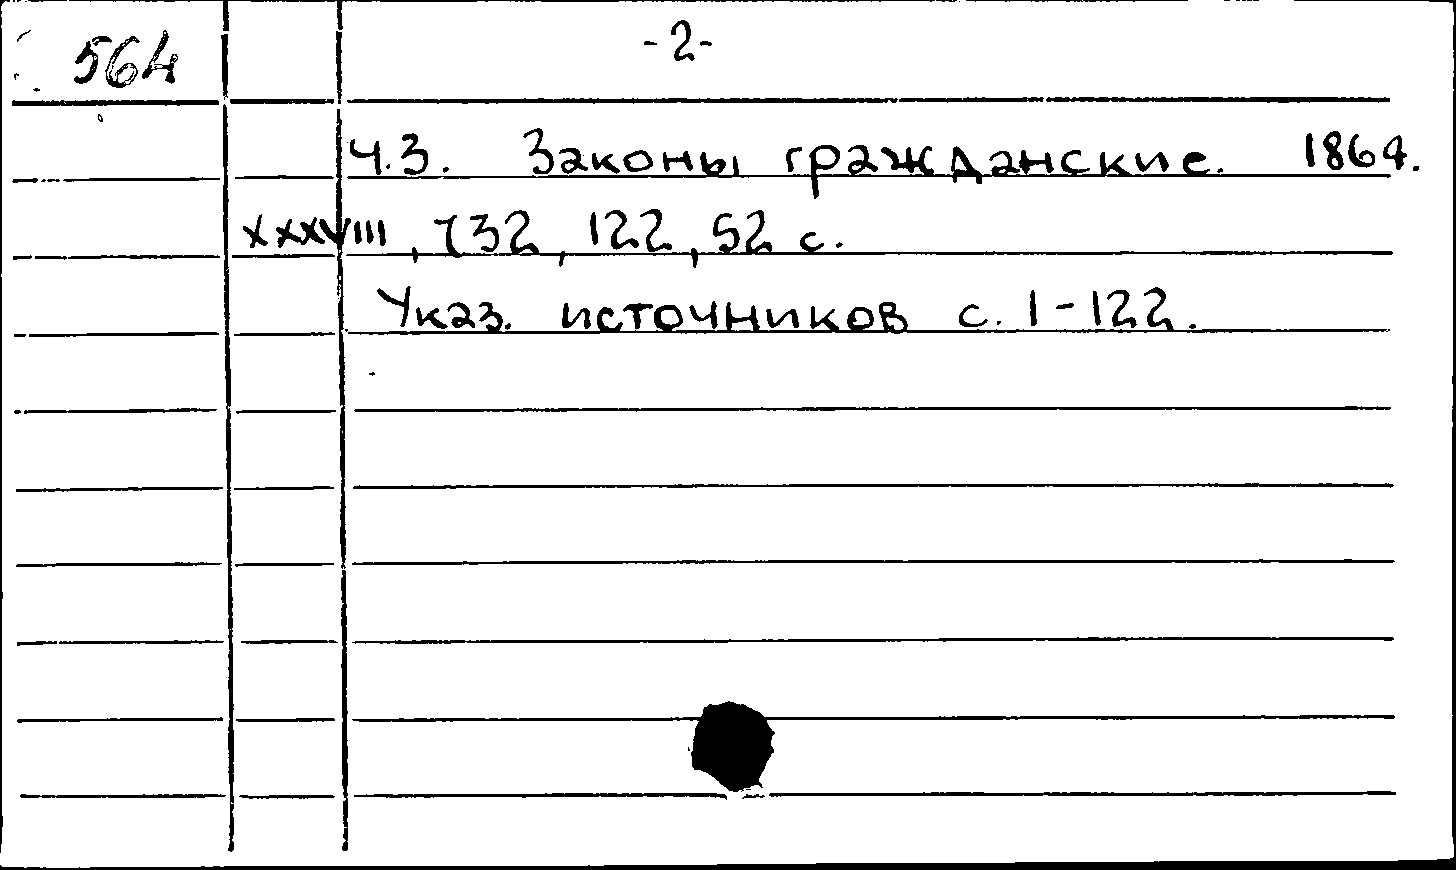 564
-2-
Ч.3. Законы гражданские. 1864.
XXXVIII, 732, 122, 52 с.
Указ. источников с. 1-122.